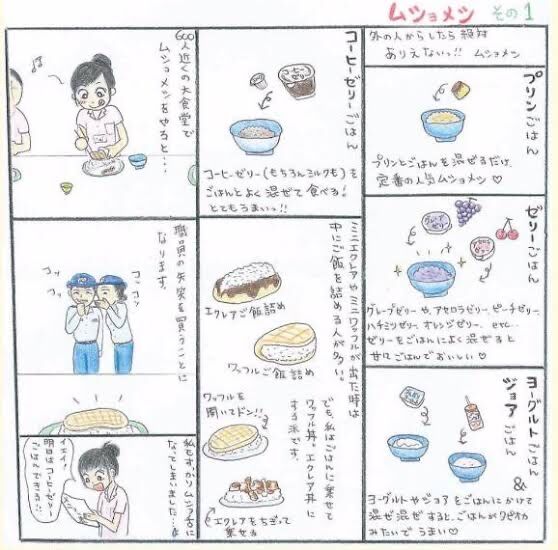 ムショメシ その1
外の人からしたら絶対
ありえないっ!! ムショメシ
プリンごはん
プリンとごはんを混ぜるだけ
定番の人気ムショメシ♡
ゼリーごはん
グレープゼリーや、アセロラゼリー、ピーチゼリー、
ハチミツゼリー、オレンジゼリー、etc...
ゼリーをごはんによく混ぜると
甘口ごはんでおいしい♡
ヨーグルトごはん
&
ジョアごはん
ヨーグルトやジョアをごはんにかけて
混ぜ混ぜすると、ごはんがタピオカ
みたいでうまい♡
コーヒーゼリーごはん
コーヒーゼリー(もちろんミルクも)を
ごはんとよく混ぜて食べる!
とてもうまいっ!!
ミニエクレアやミニワッフルが出た時は
中にご飯を詰める人が多い。
エクレアご飯詰め
ワッフルご飯詰め
でも、私はごはんに乗せて
ワッフル丼、エクレア丼に
する派です。
ワッフルを
開いてドン!!
エクレアをちぎって
乗せる
600人近くの大食堂で
ムショメシをやると・・・
職員の失笑を買うことに
なります。
コソ
コソ
コソ
私もすっかりムショ舌に
なってしまいました…
イエイ!
明日はコーヒーゼリー
ごはんできる!!